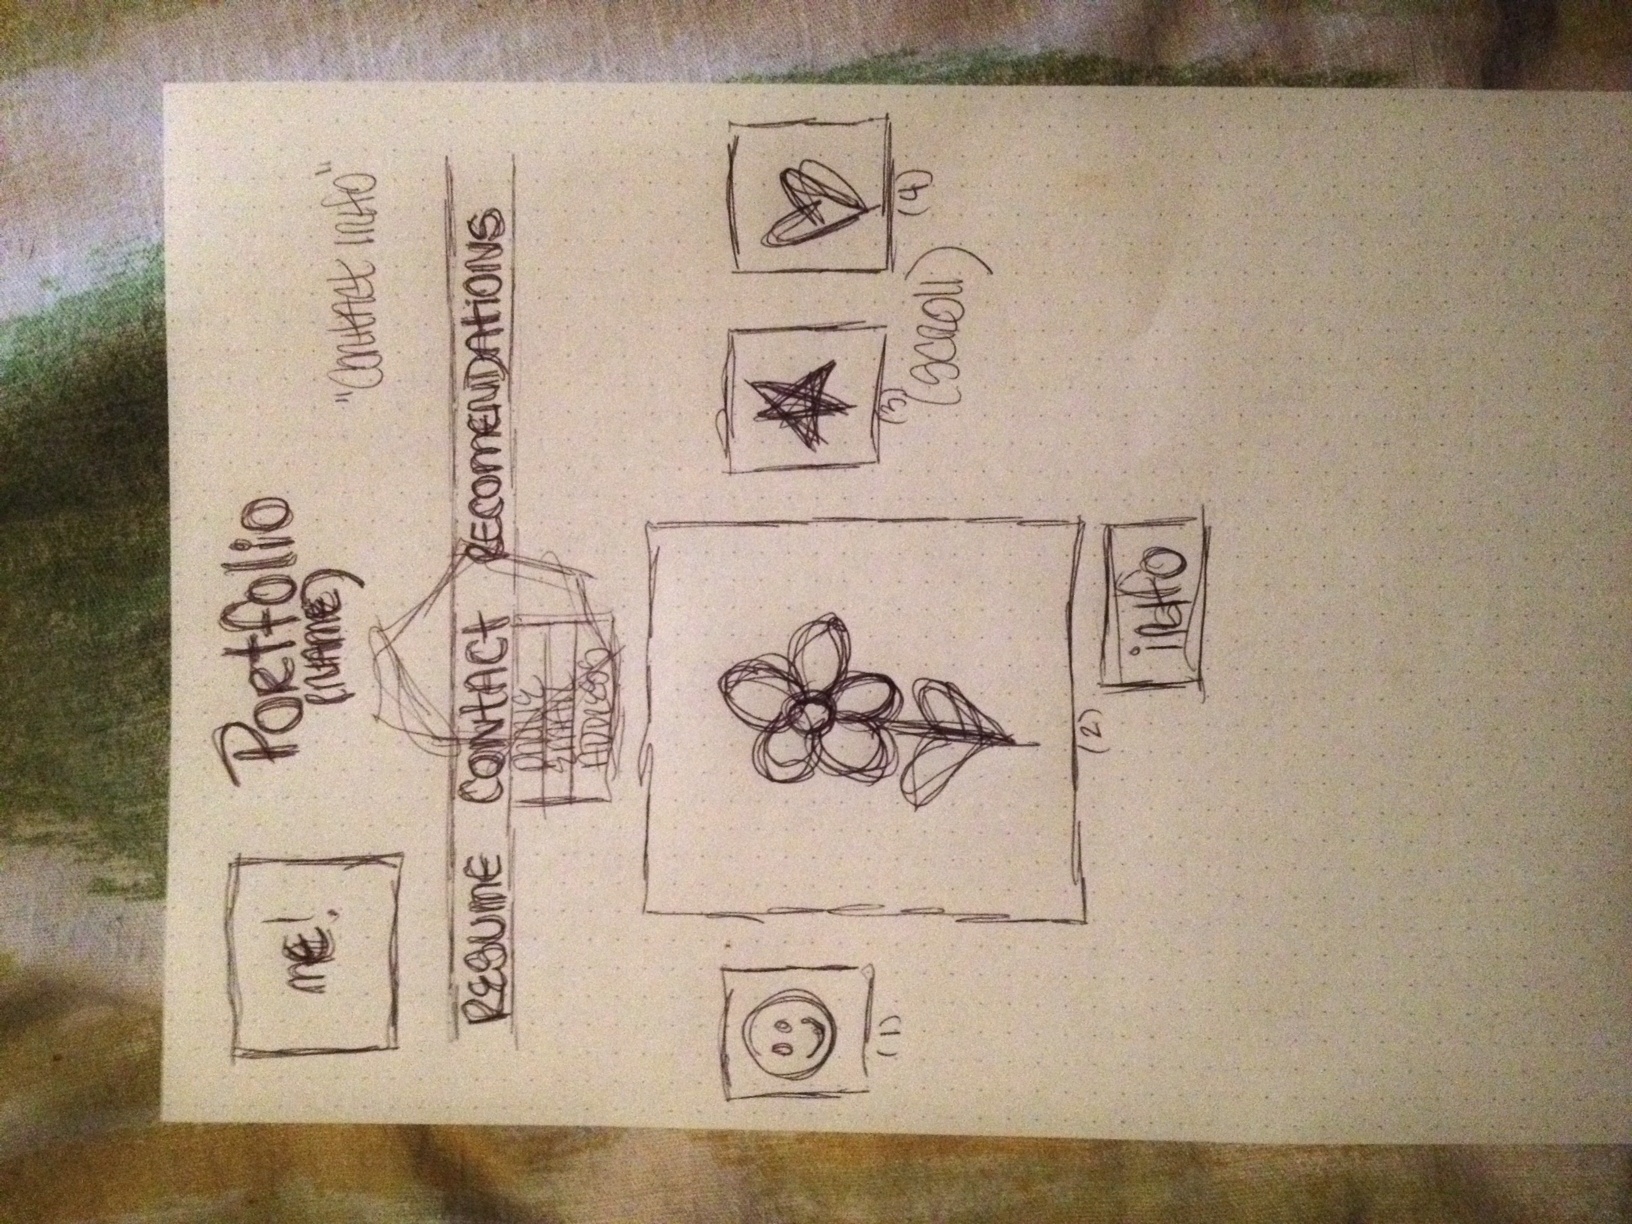 ME!
Portfolio
(NAME)
"Contact info"
RESUME CONTACT RECOMENDATIONS
PHONE
EMAIL
ADDRESS
(1)
(3)
(4)
(SCROLL)
(2)
info